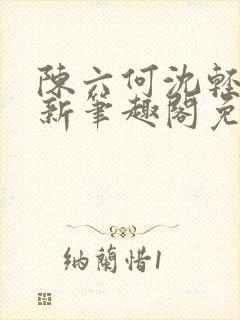 陳六何沈輕
新筆趣閣免
納蘭惜1